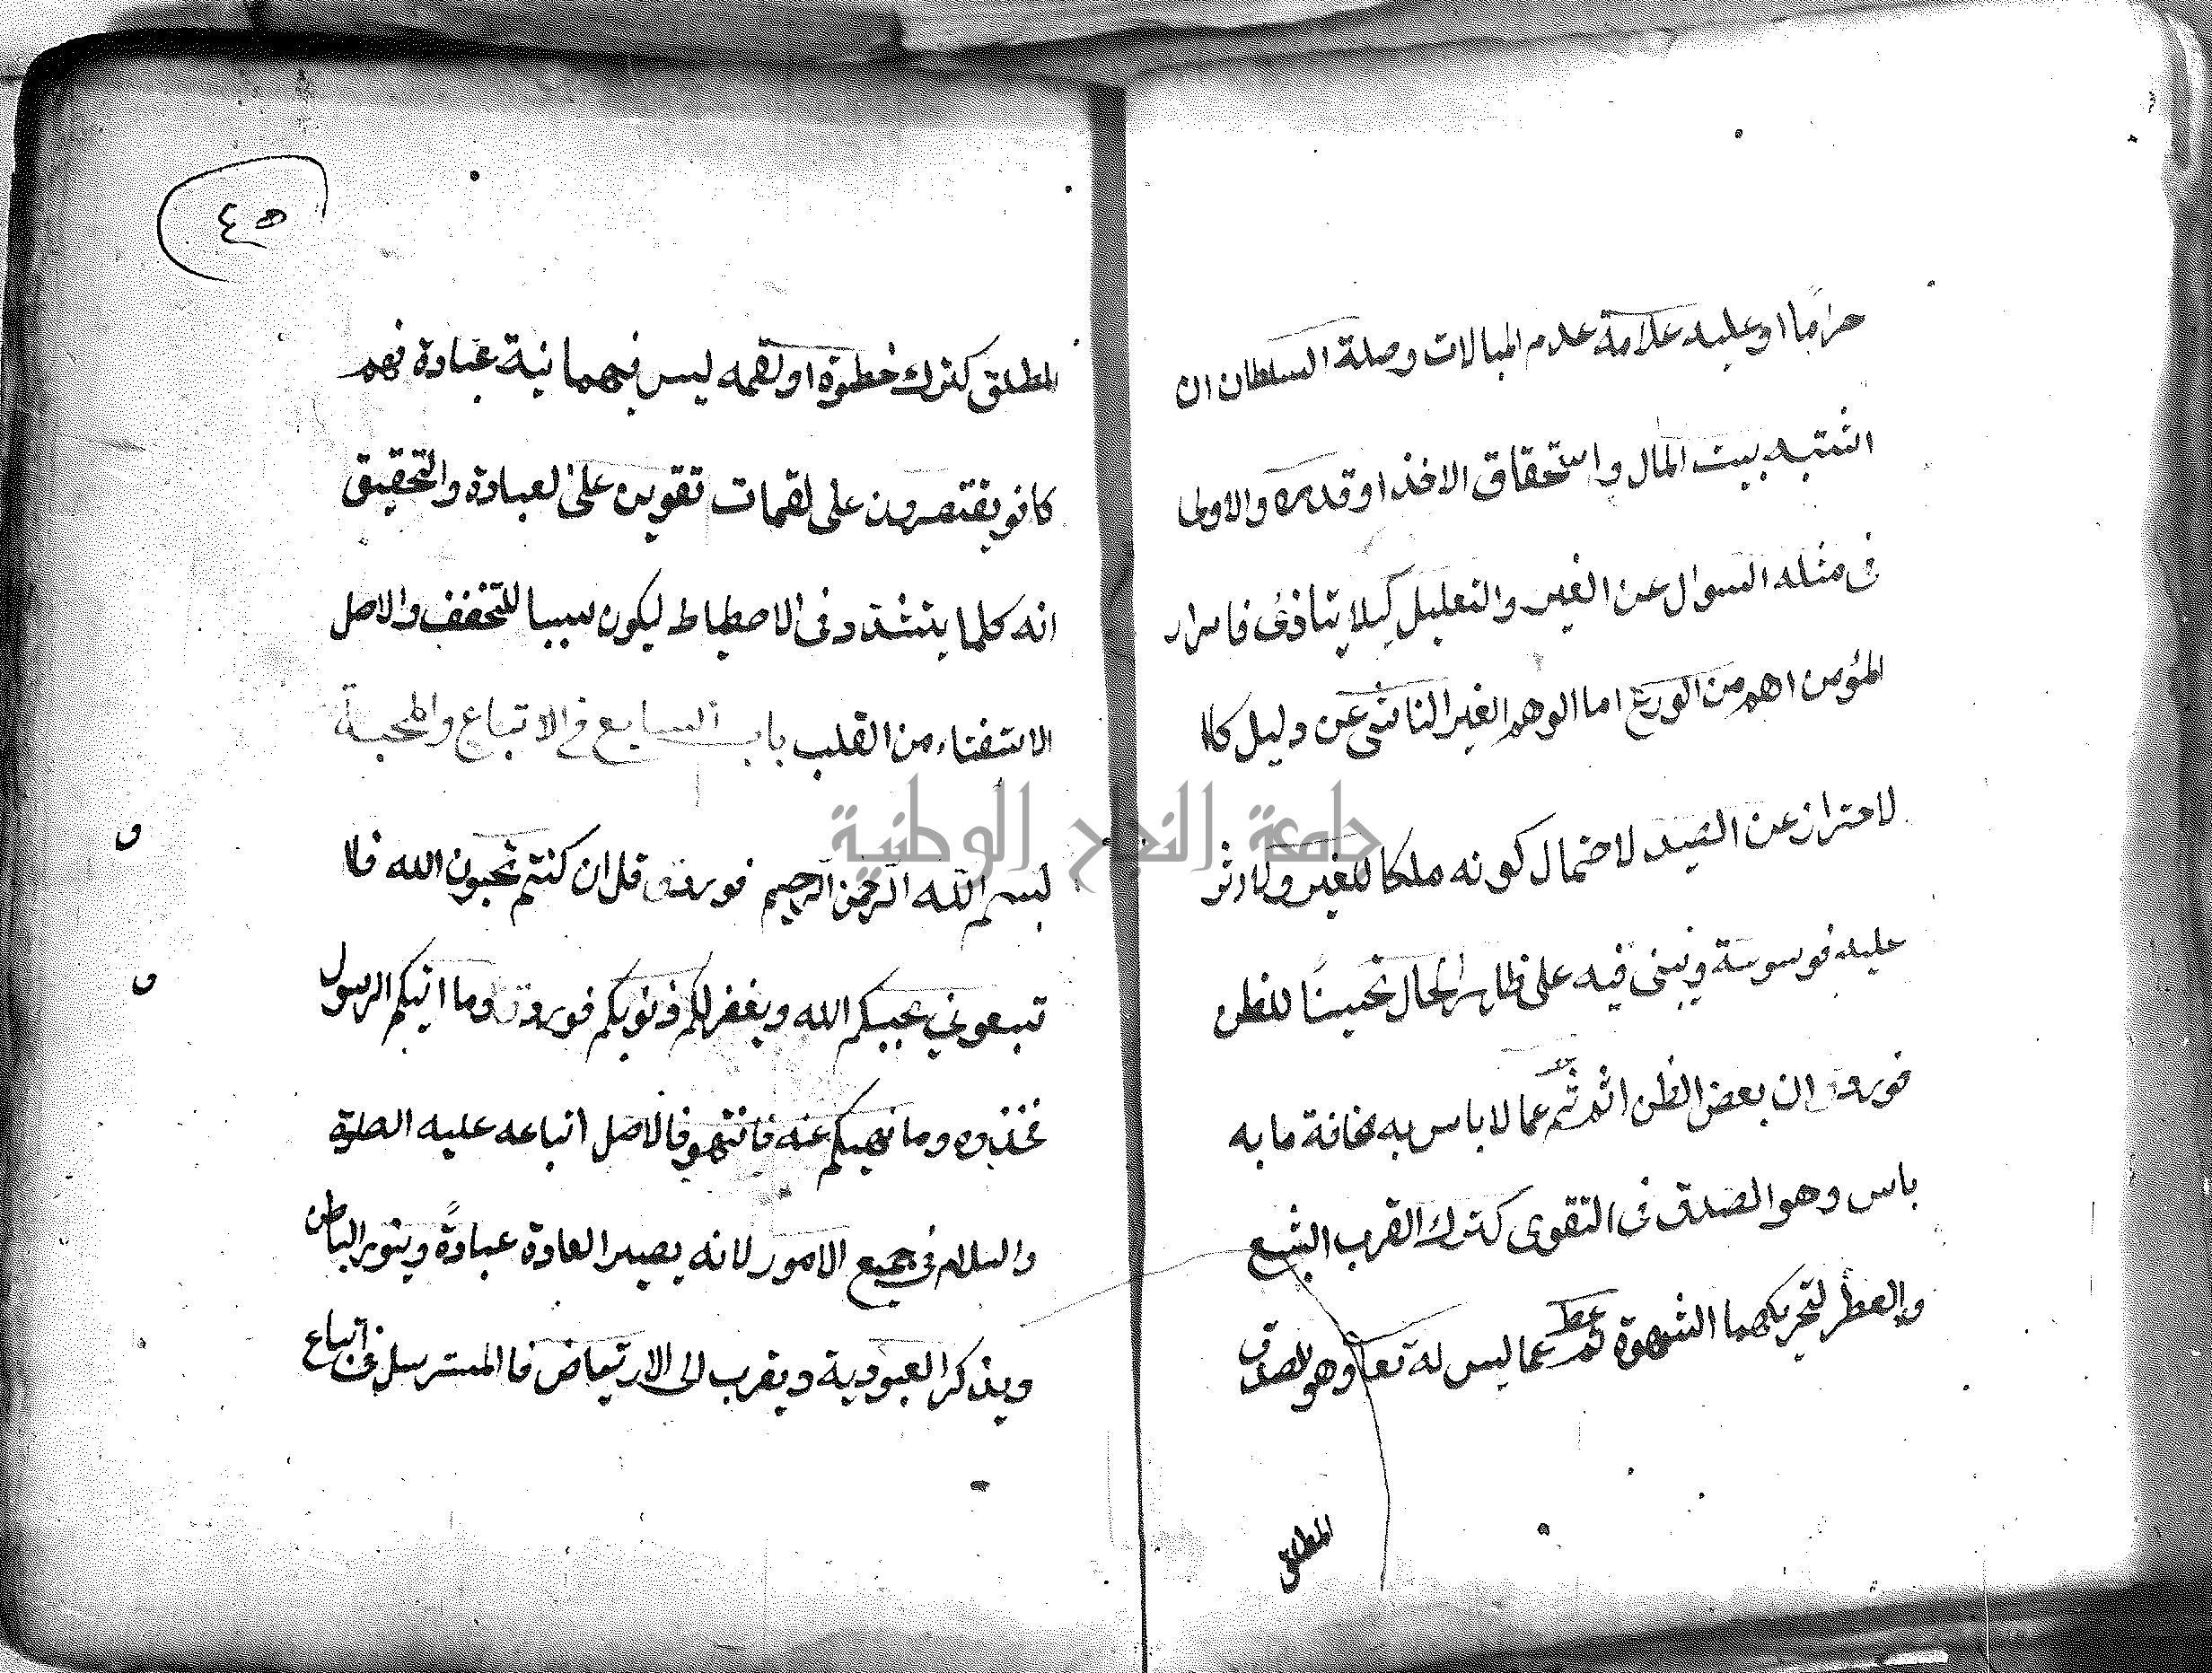 حرامًا او عليه علامة عدم المبالات وصلة السلطان ان
اشتبه بيت المال واستحقاق الاخذ او قدره والاولى
فى مثله السوال عن الغير والتعليل كيلا يتاذى فاسرار
المؤمن اهم من الورع اما الوهم الغير الناشى عن دليل كالا
لاحتراز عن الصيد لاحتمال كونه ملكا للغير ولا دثر
عليه فوسوسة ويبنى فيه على ظاهر الحال تحسينًا للظن
فورد ان بعض الظن اثم ثم عما لا باس به مخافة ما به
باس وهو الصدق فى التقوى كترك القرب الشبع
والعطر لتحريكهما الشهوة ثم عما ليس له تعا وهو الصدق
المطلق
٤٥
المطلق كترك خطوة او لقمه ليس فيهما نية عبادة فهم
كانو يقتصرون على لقمات تقوين على لعبادة والتحقيق
انه كلما يتشدد فى الاحطياط ليكون سببا للتخفف والاصل
الاستفتاء من القلب باب السابع فى الاتباع والمحبة
بسم الله الرحمن الرحيم فورد قل ان كنتم تحبون الله فا
تبعونى يحببكم الله ويغفر لكم ذنوبكم فورد وما اتيكم الرسول
فخذوه وما نهيكم عنه فانتهو فالاصل اتباعه عليه الصلوة
والسلام فى جميع الامور لانه يصير العادة عبادةً وينور الباطن
ويذكر العبودية ويقرب الى الارتياض فالمسترسل فى اتباع
جامعة النجاح الوطنية